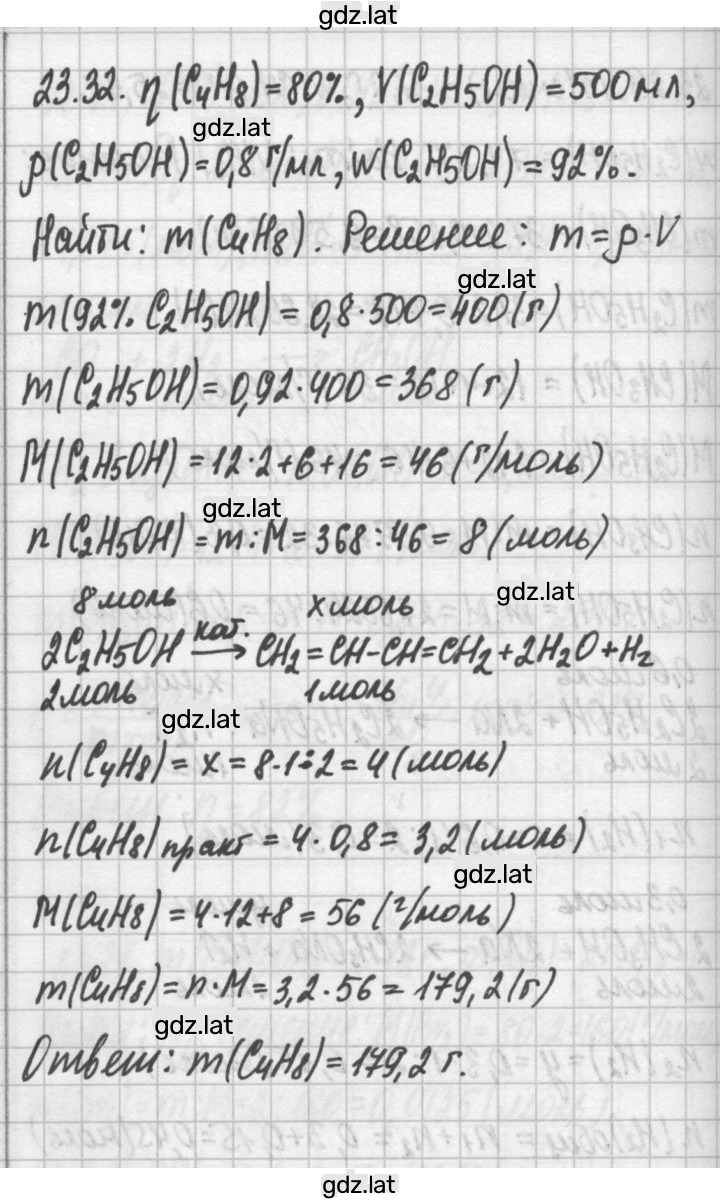 gdz.lat
23.32. η(C4H8)=80%, V(C2H5OH)=500мл,
gdz.lat
ρ(C2H5OH)=0,8 г/мл, w(C2H5OH)=92%.
Найти: m(C4H8). Решение: m=ρ·V
gdz.lat
m(92% C2H5OH)=0,8·500=400(г)
m(C2H5OH)=0,92·400=368(г)
M(C2H5OH)=12·2+6+16=46(г/моль)
gdz.lat
n(C2H5OH)=m:M=368:46=8(моль)
gdz.lat
8моль xмоль
2C2H5OH кат.→ CH2=CH-CH=CH2+2H2O+H2
2моль 1моль
gdz.lat
n(C4H8)=x=8·1:2=4(моль)
n(C4H8)практ=4·0,8=3,2(моль)
gdz.lat
M(C4H8)=4·12+8=56(г/моль)
m(C4H8)=n·M=3,2·56=179,2(г)
gdz.lat
Ответ: m(C4H8)=179,2 г.
gdz.lat